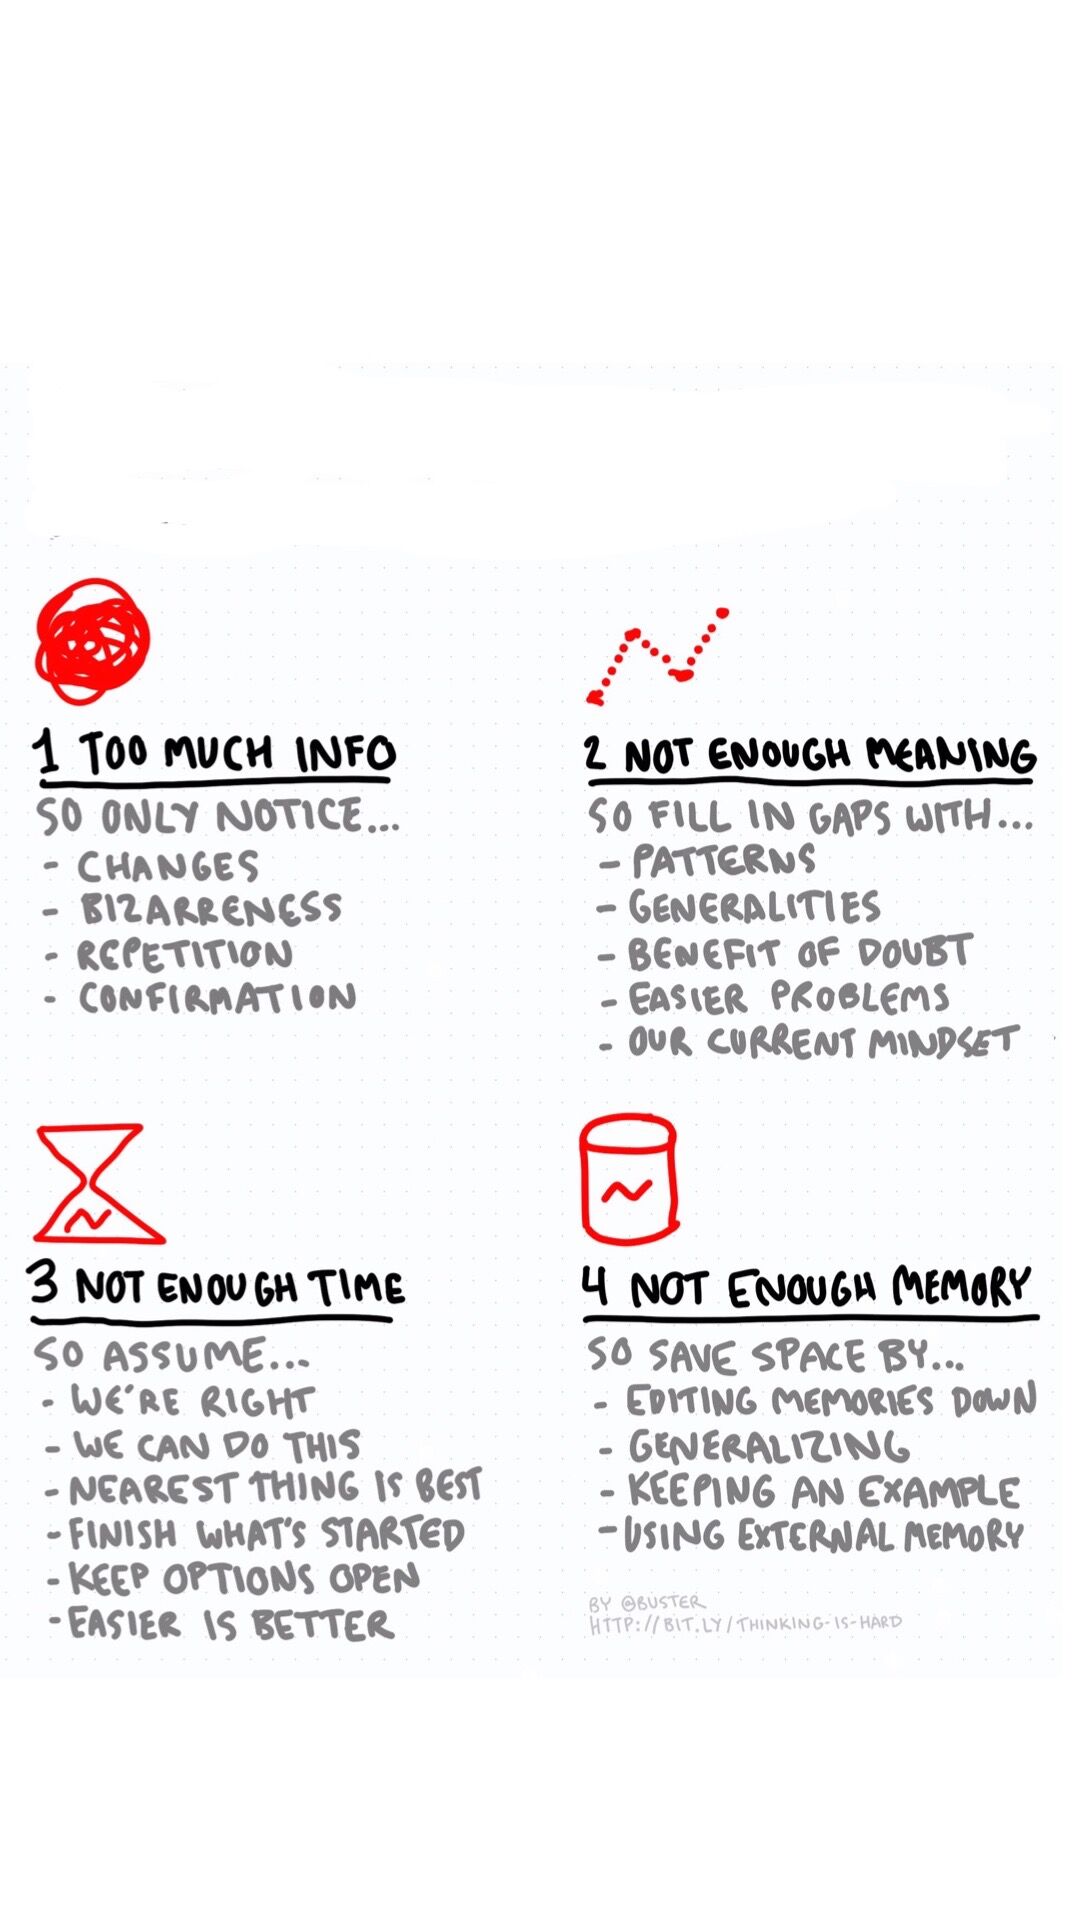 1 TOO MUCH INFO
SO ONLY NOTICE...
- CHANGES
- BIZARRENESS
- REPETITION
- CONFIRMATION
2 NOT ENOUGH MEANING
SO FILL IN GAPS WITH...
- PATTERNS
- GENERALITIES
- BENEFIT OF DOUBT
- EASIER PROBLEMS
- OUR CURRENT MINDSET
3 NOT ENOUGH TIME
SO ASSUME...
- WE'RE RIGHT
- WE CAN DO THIS
- NEAREST THING IS BEST
- FINISH WHAT'S STARTED
- KEEP OPTIONS OPEN
- EASIER IS BETTER
4 NOT ENOUGH MEMORY
SO SAVE SPACE BY...
- EDITING MEMORIES DOWN
- GENERALIZING
- KEEPING AN EXAMPLE
- USING EXTERNAL MEMORY
BY @BUSTER
HTTP://BIT.LY/THINKING-IS-HARD